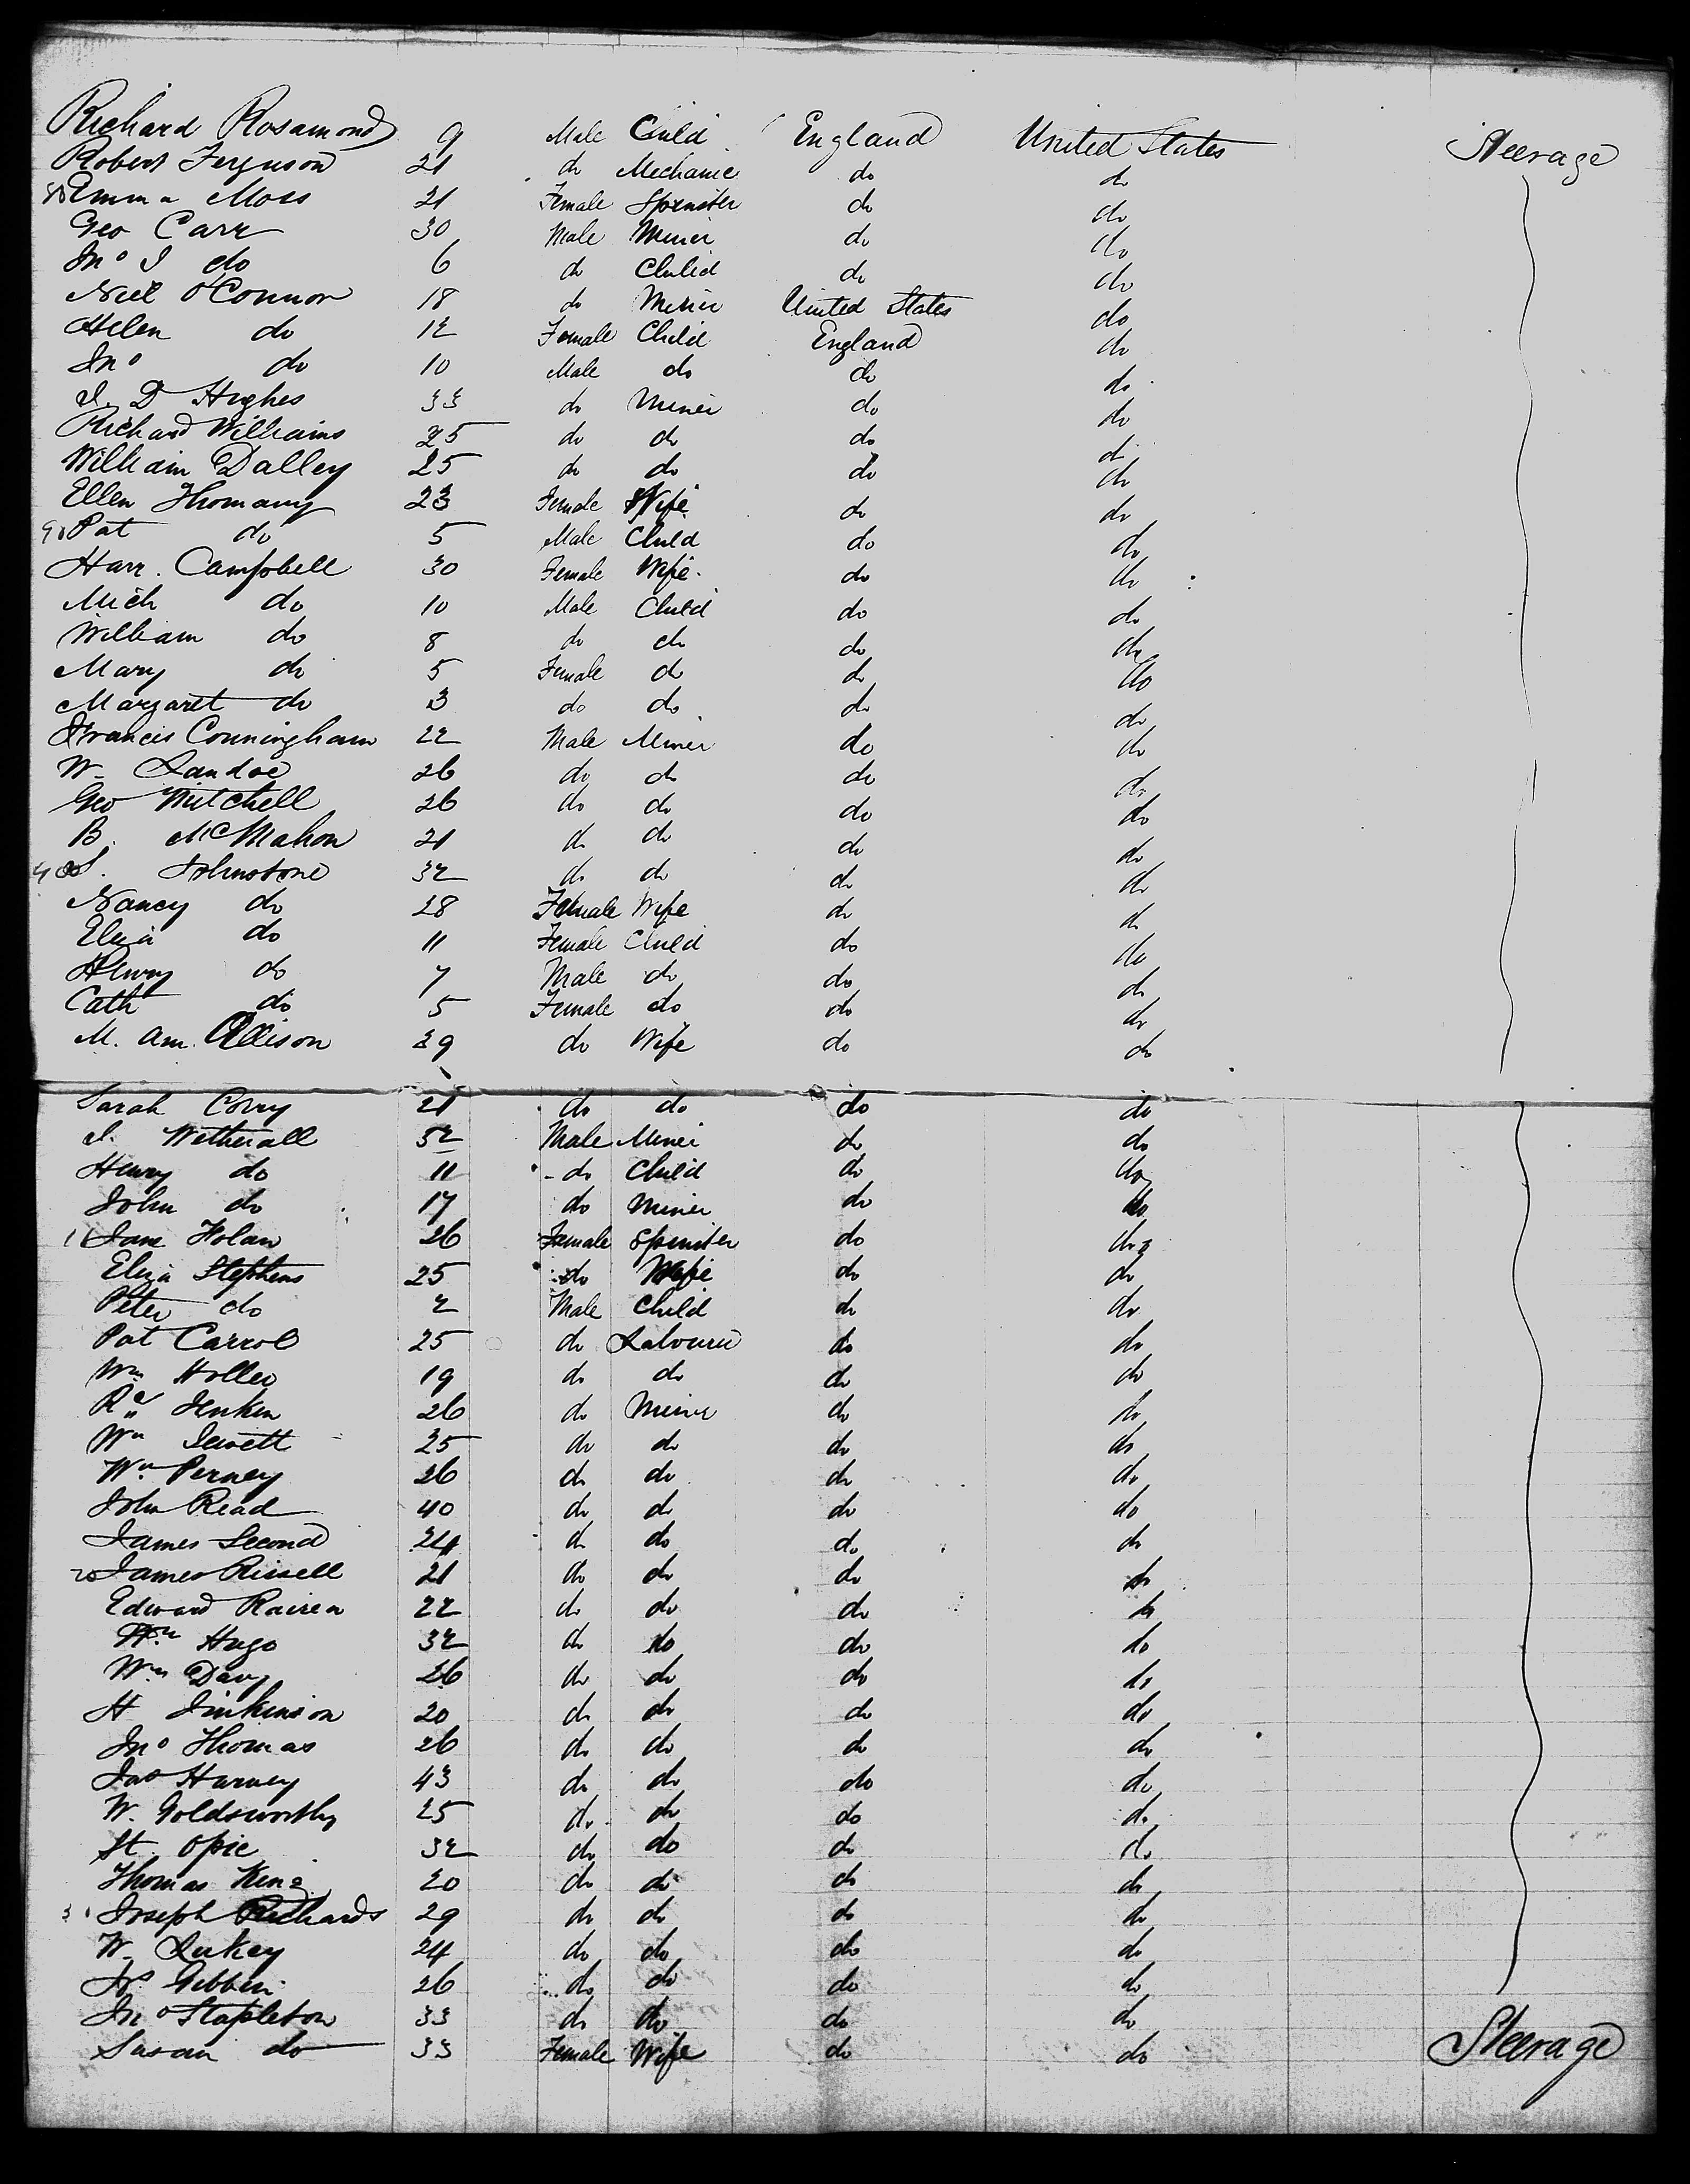 Richard Rosamond 9 Male Child England United States Steerage
Robert Ferguson 21 do Mechanic do do
Emma Moss 21 Female Spinster do do
Geo Carr 30 Male Miner do do
Jno J do 6 do Child do do
Neil O'Connor 18 do Miner United States do
Helen do 12 Female Child England do
Jno do 10 Male do do do
J. D Hughes 33 do Miner do do
Richard Williams 25 do do do do
William Dalley 25 do do do do
Ellen Thomany 23 Female Wife do do
90 Pat do 5 Male Child do do
Harr. Campbell 30 Female Wife do do
Mich do 10 Male Child do do
William do 8 do do do do
Mary do 5 Female do do do
Margaret do 3 do do do do
Francis Conningham 22 Male Miner do do
W. Landoe 26 do do do do
Geo Mitchell 26 do do do do
B. McMahon 21 do do do do
S. Johnstone 32 do do do do
Nancy do 28 Female Wife do do
Eliza do 11 Female Child do do
Henry do 7 Male do do do
Cath do 5 Female do do do
M. Am. Allison 29 do Wife do do
Sarah Corry 21 do do do do
J. Wetherall 52 Male Miner do do
Henry do 11 do Child do do
John do 17 do Miner do do
Jane Holan 26 Female Spinster do do
Eliza Stephens 25 do Wife do do
Peter do 2 Male Child do do
Pat Carrol 25 do Labourer do do
Wm Holleo 19 do do do do
Rd Jenken 26 do Miner do do
Wm Jewett 25 do do do do
Wm Perney 26 do do do do
John Read 40 do do do do
James Second 24 do do do do
20 James Rissell 21 do do do do
Edward Raisen 22 do do do do
Wm Hugo 32 do do do do
Wm Davy 26 do do do do
H Jinkinson 20 do do do do
Jno Thomas 26 do do do do
Jas Harvey 43 do do do do
W. Goldsworthy 25 do do do do
St. Opie 32 do do do do
Thomas King 20 do do do do
Joseph Richards 29 do do do do
W. Lukey 24 do do do do
Gibben 26 do do do do
Jno Stapleton 33 do do do do
Susan do 33 Female Wife do do Steerage